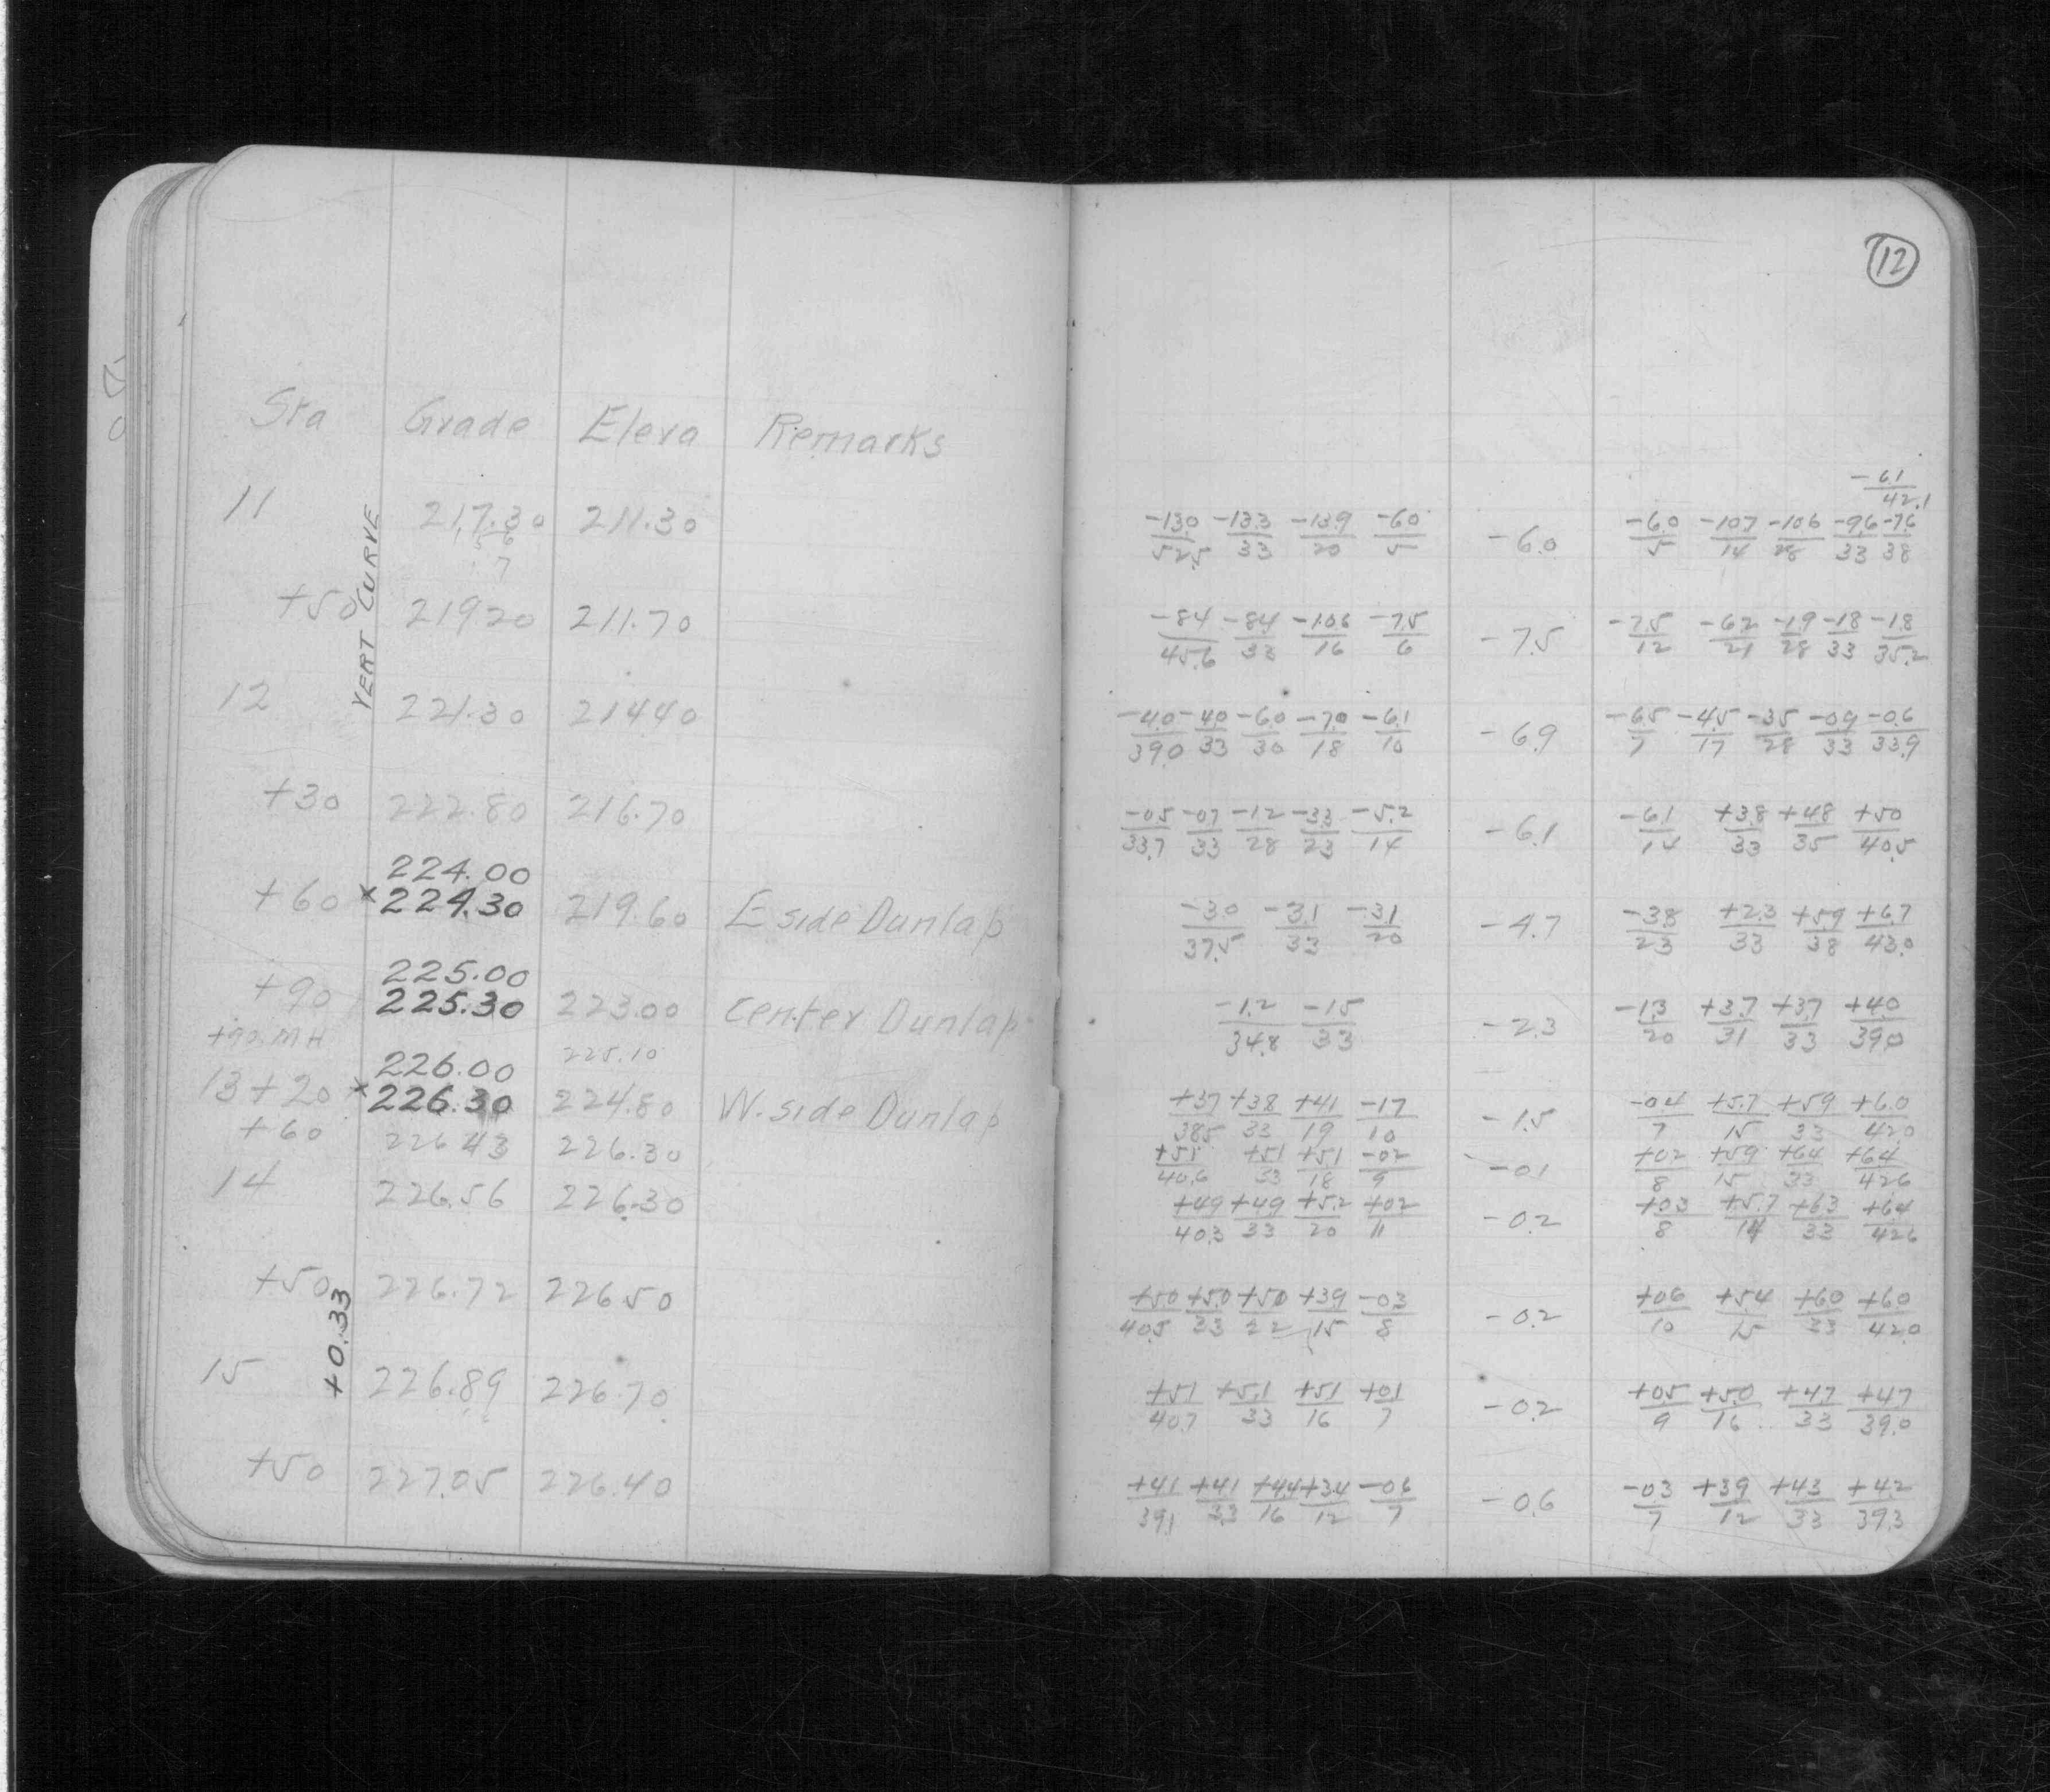 12
Sta Grade Eleva Remarks
VERT CURVE
-6.1/42.1
11 217.30 211.30 -13.0/52.5 -13.3/33 -13.9/20 -6.0/5 -6.0 -6.0/5 -10.7/14 -10.6/28 -9.6/33 -7.6/38
+50 219.20 211.70 -8.4/45.6 -8.4/33 -10.6/16 -7.5/6 -7.5 -7.5/12 -6.2/21 -1.9/28 -1.8/33 -1.8/35.2
12 221.30 214.40 -4.0/39.0 -4.0/33 -6.0/30 -7.0/18 -6.1/10 -6.9 -6.5/7 -4.5/17 -3.5/28 -0.9/33 -0.6/33.9
+30 222.80 216.70 -0.5/33.7 -0.7/33 -1.2/28 -3.3/23 -5.2/14 -6.1 -6.1/14 +3.8/33 +4.8/35 +5.0/40.5
224.00
+60 x 224.30 219.60 E side Dunlap -3.0/37.5 -3.1/33 -3.1/20 -4.7 -3.8/23 +2.3/33 +5.9/38 +6.7/43.0
225.00
+90 225.30 223.00 Center Dunlap -1.2/34.8 -1.5/33 -2.3 -1.3/20 +3.7/31 +3.7/33 +4.0/39.0
+90 MH 225.10
226.00
13+20 x 226.30 224.80 W. side Dunlap +3.7/38.5 +3.8/33 +4.1/19 -1.7/10 -1.5 -0.4/7 +5.7/15 +5.9/33 +6.0/42.0
+60 226.43 226.30 +5.1/40.6 +5.1/33 +5.1/18 -0.2/9 -0.1 +0.2/8 +5.9/15 +6.4/33 +6.4/42.6
14 226.56 226.30 +4.9/40.3 +4.9/33 +5.2/20 +0.2/11 -0.2 +0.3/8 +5.7/14 +6.3/33 +6.4/42.6
+0.33
+50 226.72 226.50 +5.0/40.5 +5.0/33 +5.0/22 +3.9/15 -0.3/8 -0.2 +0.6/10 +5.4/15 +6.0/33 +6.0/42.0
15 226.89 226.70 +5.1/40.7 +5.1/33 +5.1/16 +0.1/7 -0.2 +0.5/9 +5.0/16 +4.7/33 +4.7/39.0
+50 227.05 226.40 +4.1/39.1 +4.1/33 +4.4/16 +3.4/12 -0.6/7 -0.6 -0.3/7 +3.9/12 +4.3/33 +4.2/39.3